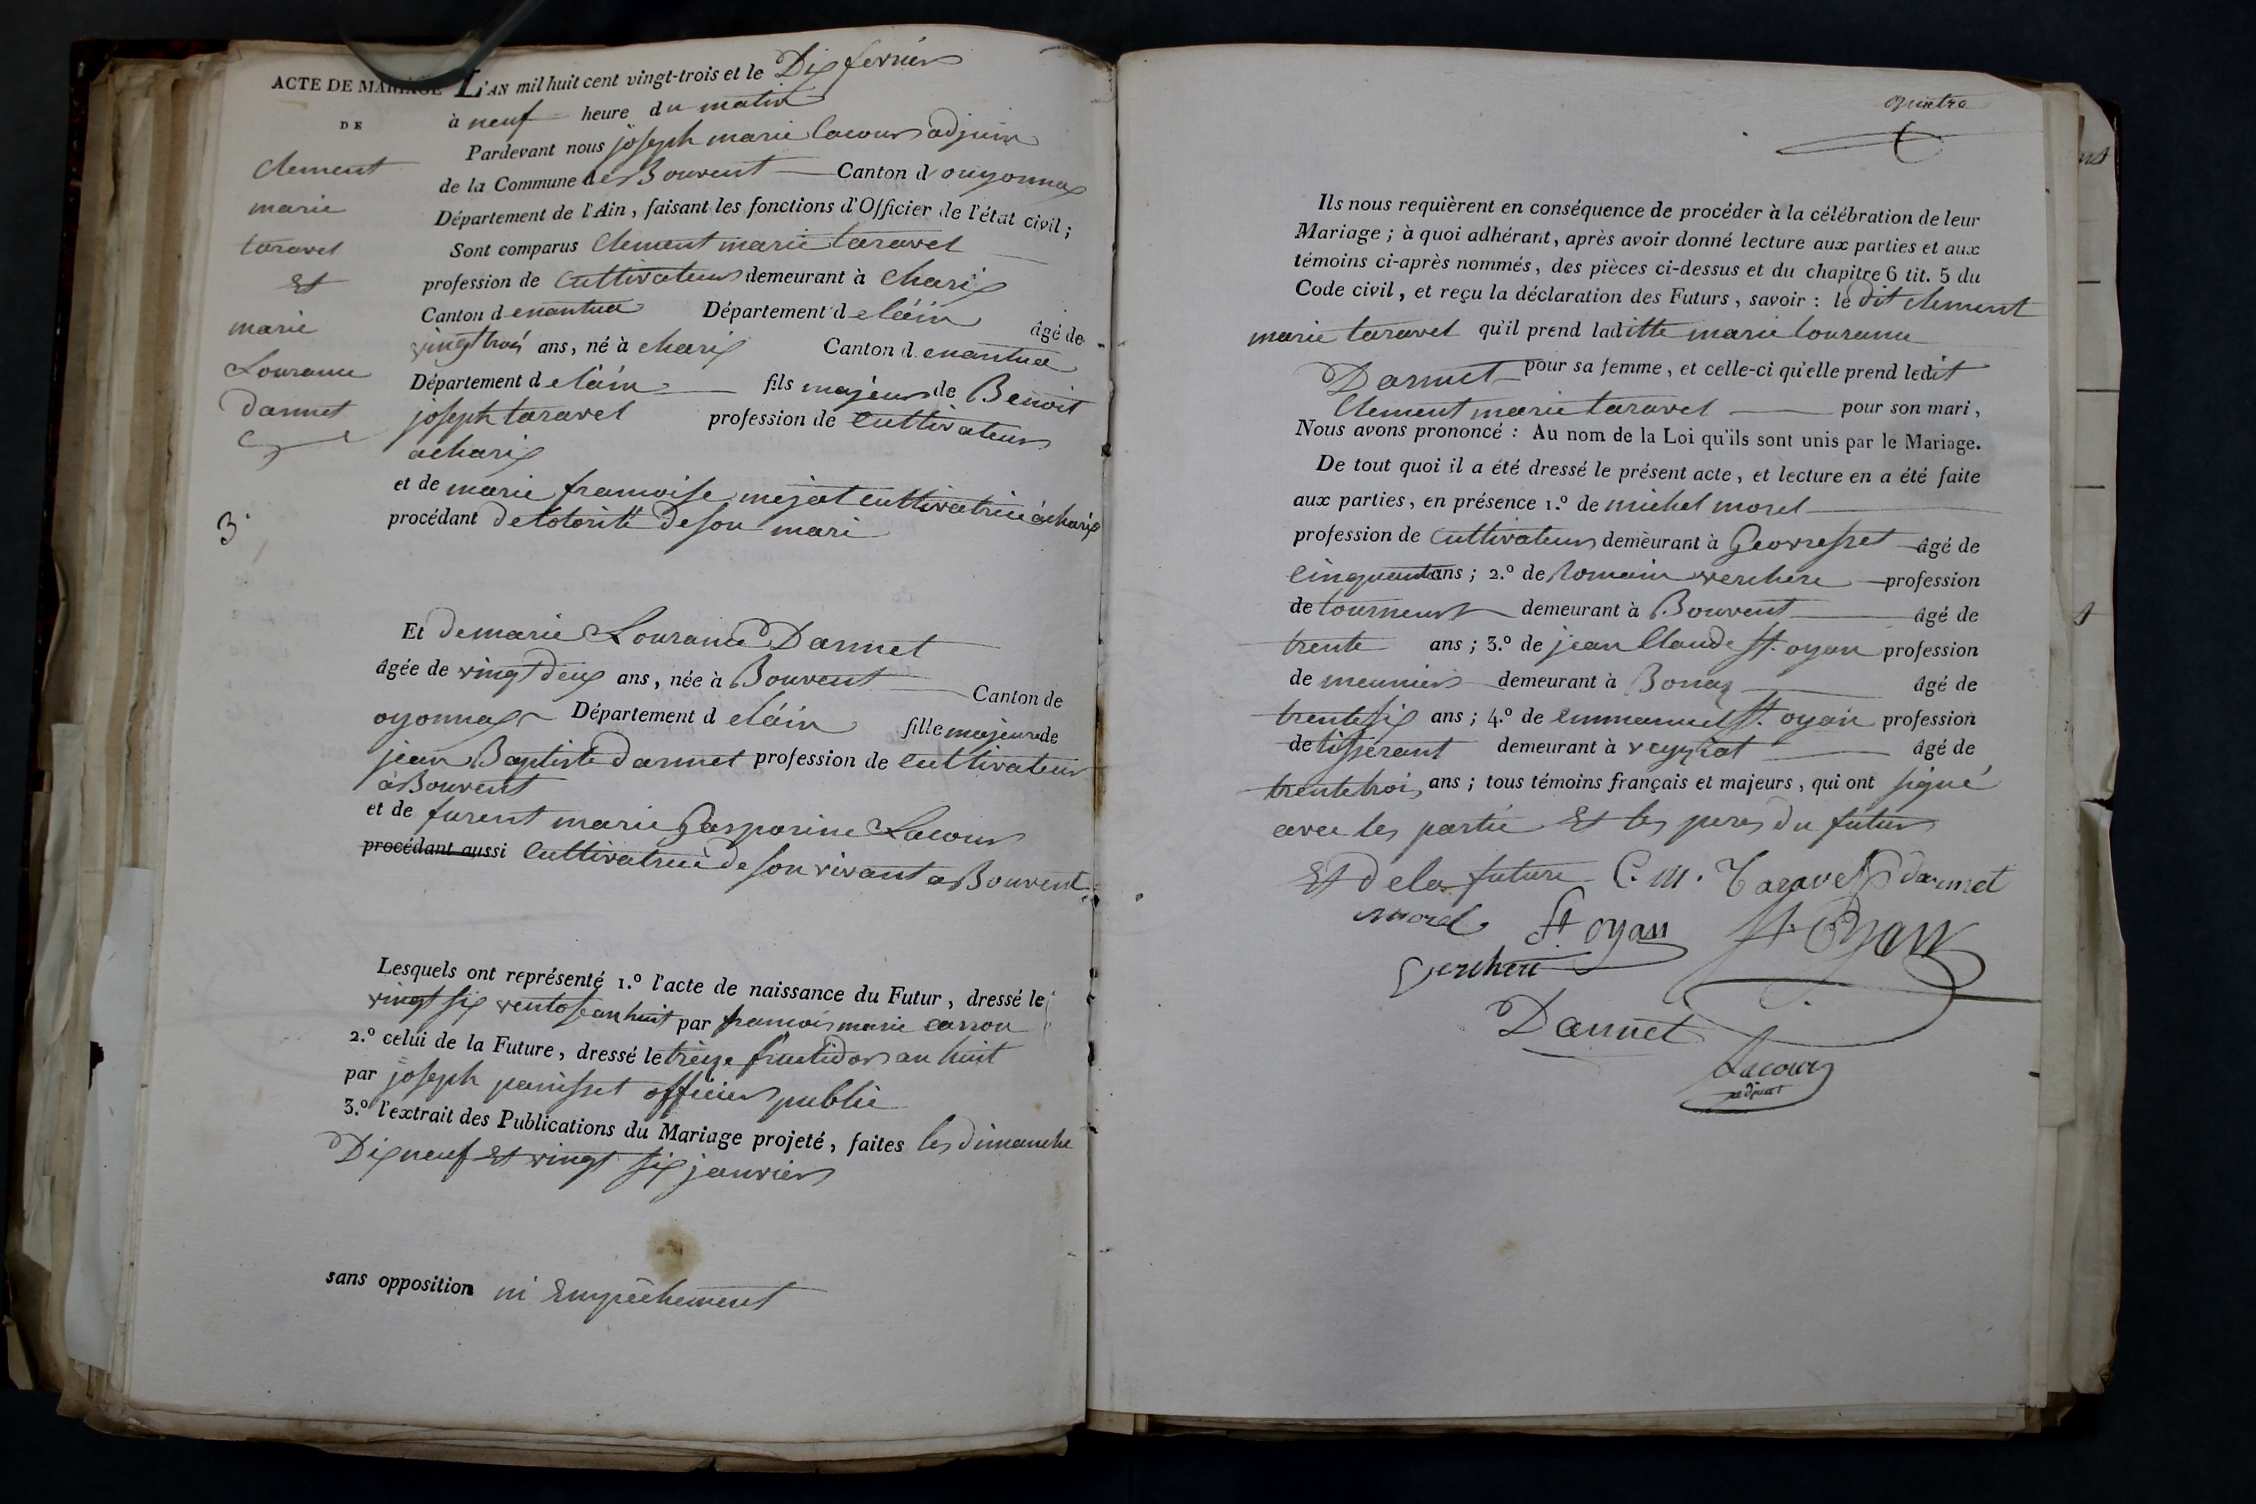 ACTE DE MARIAGE
DE
Clement
marie
taravel
Et
marie
Louranu
darmet
3
L'AN mil huit cent vingt-trois et le Dix fevrier
à neuf heure du matin
Pardevant nous joseph marie lacour adjoin
de la Commune de Bouvent Canton d'ouyonnax
Département de l'Ain, faisant les fonctions d'Officier de l'état civil;
Sont comparus Clement marie taravel
profession de Cultivateur demeurant à Charix
Canton d enantua Département d eláin âgé de
vingt trois ans, né à charix Canton d enantua
Département d eláin fils majeur de Benoit
joseph taravel profession de Cultivateur
acharix
et de marie francoise mejat Cultivatrice à charix
procédant de lotorité de son mari
Et de marie Louranu Darmet
âgée de vingt deux ans, née à Bouvent Canton de
oyonnax Département d eláin fille majeur de
jean Baptiste darmet profession de Cultivateur
à Bouvent
et de furent marie Gasparine Lacour
procédant aussi Cultivatrice de son vivant a Bouvent
Lesquels ont représenté 1.º l'acte de naissance du Futur, dressé le
vingt six ventose an huit par francois marie carron
2.º celui de la Future, dressé le treize fructidor an huit
par joseph panisset officier public
3.º l'extrait des Publications du Mariage projeté, faites les dimanche
Dix neuf et vingt six janvier
sans opposition ni Empêchement
quatre
Ils nous requièrent en conséquence de procéder à la célébration de leur
Mariage; à quoi adhérant, après avoir donné lecture aux parties et aux
témoins ci-après nommés, des pièces ci-dessus et du chapitre 6 tit. 5 du
Code civil, et reçu la déclaration des Futurs, savoir: le dit clement
marie taravel qu'il prend laditte marie louranu
Darmet pour sa femme, et celle-ci qu'elle prend ledit
Clement marie taravel pour son mari,
Nous avons prononcé: Au nom de la Loi qu'ils sont unis par le Mariage.
De tout quoi il a été dressé le présent acte, et lecture en a été faite
aux parties, en présence 1.º de michel morel
profession de Cultivateur demeurant à Geovresset âgé de
Cinquante ans; 2.º de Romain verchere profession
de tourneur demeurant à Bouvent âgé de
trente ans; 3.º de jean Claude St. oyan profession
de meunier demeurant à Bonaz âgé de
trente six ans; 4.º de emmanuel St. oyan profession
de tisserant demeurant à veyziat âgé de
trente trois ans; tous témoins français et majeurs, qui ont signé
avec les partie Et les peres du futur
Et de la future C. m. Taravel darmet
morel St oyan St. Oyan
Verchere
Darmet
Lacour
adjoint